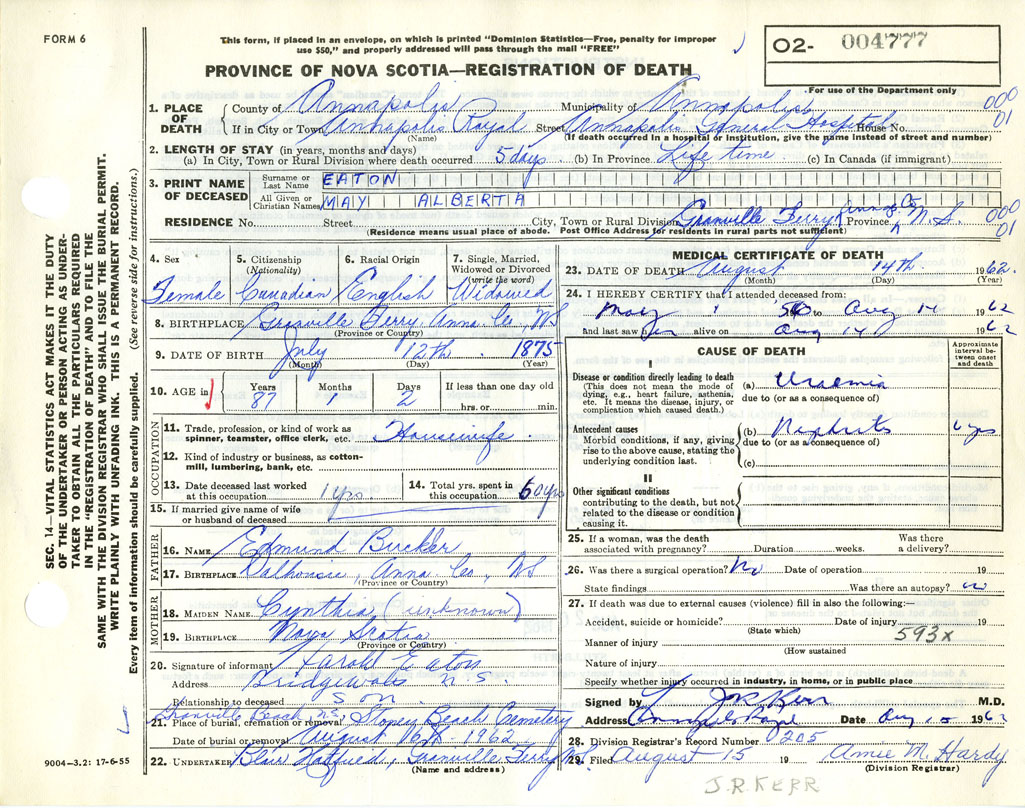 FORM 6
This form, if placed in an envelope, on which is printed "Dominion Statistics—Free, penalty for improper
use $50," and properly addressed will pass through the mail "FREE"
O2- 004777
PROVINCE OF NOVA SCOTIA—REGISTRATION OF DEATH
For use of the Department only
1. PLACE OF DEATH
County of Annapolis Municipality of Annapolis 000
If in City or Town Annapolis Royal Street Annapolis General Hospital House No. 01
(Name) (If death occurred in a hospital or institution, give the name instead of street and number)
2. LENGTH OF STAY (in years, months and days)
(a) In City, Town or Rural Division where death occurred 5 days (b) In Province Life time (c) In Canada (if immigrant)
3. PRINT NAME OF DECEASED
Surname or Last Name EATON
All Given or Christian Names MAY ALBERTA
RESIDENCE No. Street City, Town or Rural Division Granville Ferry Anna. Co Province N.S. 000
(Residence means usual place of abode. Post Office Address for residents in rural parts not sufficient) 01
4. Sex Female
5. Citizenship (Nationality) Canadian
6. Racial Origin English
7. Single, Married, Widowed or Divorced (write the word) Widowed
8. BIRTHPLACE Granville Ferry, Anna. Co, NS
(Province or Country)
9. DATE OF BIRTH July 12th 1875
(Month) (Day) (Year)
10. AGE in Years 87 Months 1 Days 2 If less than one day old hrs. or min.
OCCUPATION
11. Trade, profession, or kind of work as spinner, teamster, office clerk, etc. Housewife
12. Kind of industry or business, as cotton-mill, lumbering, bank, etc.
13. Date deceased last worked at this occupation 1 yrs.
14. Total yrs. spent in this occupation 60 yrs
15. If married give name of wife or husband of deceased
FATHER
16. NAME Edmund Bucker
17. BIRTHPLACE Dalhousie, Anna Co, NS
(Province or Country)
MOTHER
18. MAIDEN NAME Cynthia (unknown)
19. BIRTHPLACE Nova Scotia
(Province or Country)
20. Signature of informant Harold Eaton
Address N.S.
Relationship to deceased Son
Granville Beach N.S.
21. Place of burial, cremation or removal Stoney Beach Cemetery
Date of burial or removal August 16th 1962
22. UNDERTAKER Blair Hatfield, Granville Ferry N.S.
(Name and address)
MEDICAL CERTIFICATE OF DEATH
23. DATE OF DEATH August 14th 1962
(Month) (Day) (Year)
24. I HEREBY CERTIFY that I attended deceased from:
May 1 50 to Aug 14 1962
and last saw alive on Aug 14 1962
CAUSE OF DEATH
Approximate interval between onset and death
I
Disease or condition directly leading to death
(This does not mean the mode of dying, e.g., heart failure, asthenia, etc. It means the disease, injury, or complication which caused death.)
(a) Uraemia
due to (or as a consequence of)
Antecedent causes
Morbid conditions, if any, giving rise to the above cause, stating the underlying condition last.
(b) Nephritis yrs
due to (or as a consequence of)
(c)
II
Other significant conditions
contributing to the death, but not related to the disease or condition causing it.
25. If a woman, was the death associated with pregnancy? Duration weeks. Was there a delivery?
26. Was there a surgical operation? No Date of operation 19
State findings Was there an autopsy? no
27. If death was due to external causes (violence) fill in also the following:—
Accident, suicide or homicide? Date of injury 19
(State which) 593x
Manner of injury
(How sustained)
Nature of injury
Specify whether injury occurred in industry, in home, or in public place
Signed by J R Kerr M.D.
Address Annapolis Royal Date Aug 15 1962
28. Division Registrar's Record Number 205
29. Filed August 15 19 Annie M. Hardy
(Division Registrar)
J.R. KERR
SEC. 14—VITAL STATISTICS ACT MAKES IT THE DUTY
OF THE UNDERTAKER OR PERSON ACTING AS UNDER-
TAKER TO OBTAIN ALL THE PARTICULARS REQUIRED
IN THE "REGISTRATION OF DEATH" AND TO FILE THE
SAME WITH THE DIVISION REGISTRAR WHO SHALL ISSUE THE BURIAL PERMIT.
WRITE PLAINLY WITH UNFADING INK. THIS IS A PERMANENT RECORD.
Every item of information should be carefully supplied. (See reverse side for instructions.)
9004-3.2: 17-6-55